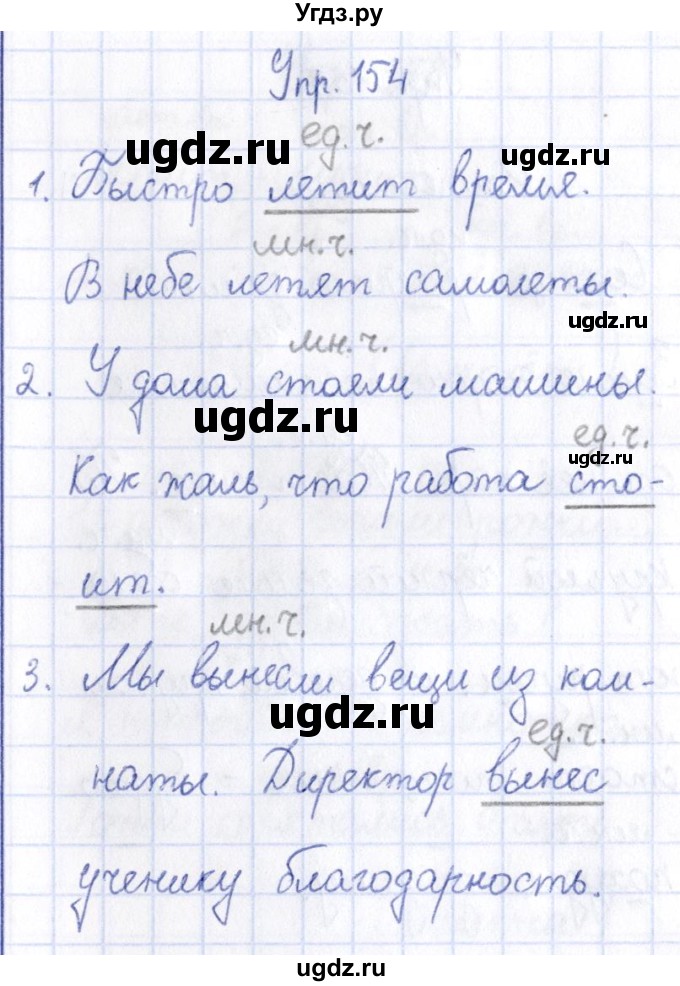 Угдз.ру
Упр. 154
ugdz.ru
ед.ч.
ugdz.ru
1. Быстро летит время.
мн.ч.
В небе летят самолеты.
ugdz.ru
мн.ч.
2. У дома стояли машины.
ugdz.ru
ед.ч.
ugdz.ru
Как жаль, что работа сто-
ит.
мн.ч.
3. Мы вынесли вещи из ком-
ugdz.ru
ед.ч.
наты. Директор вынес
ученику благодарность.
ugdz.ru